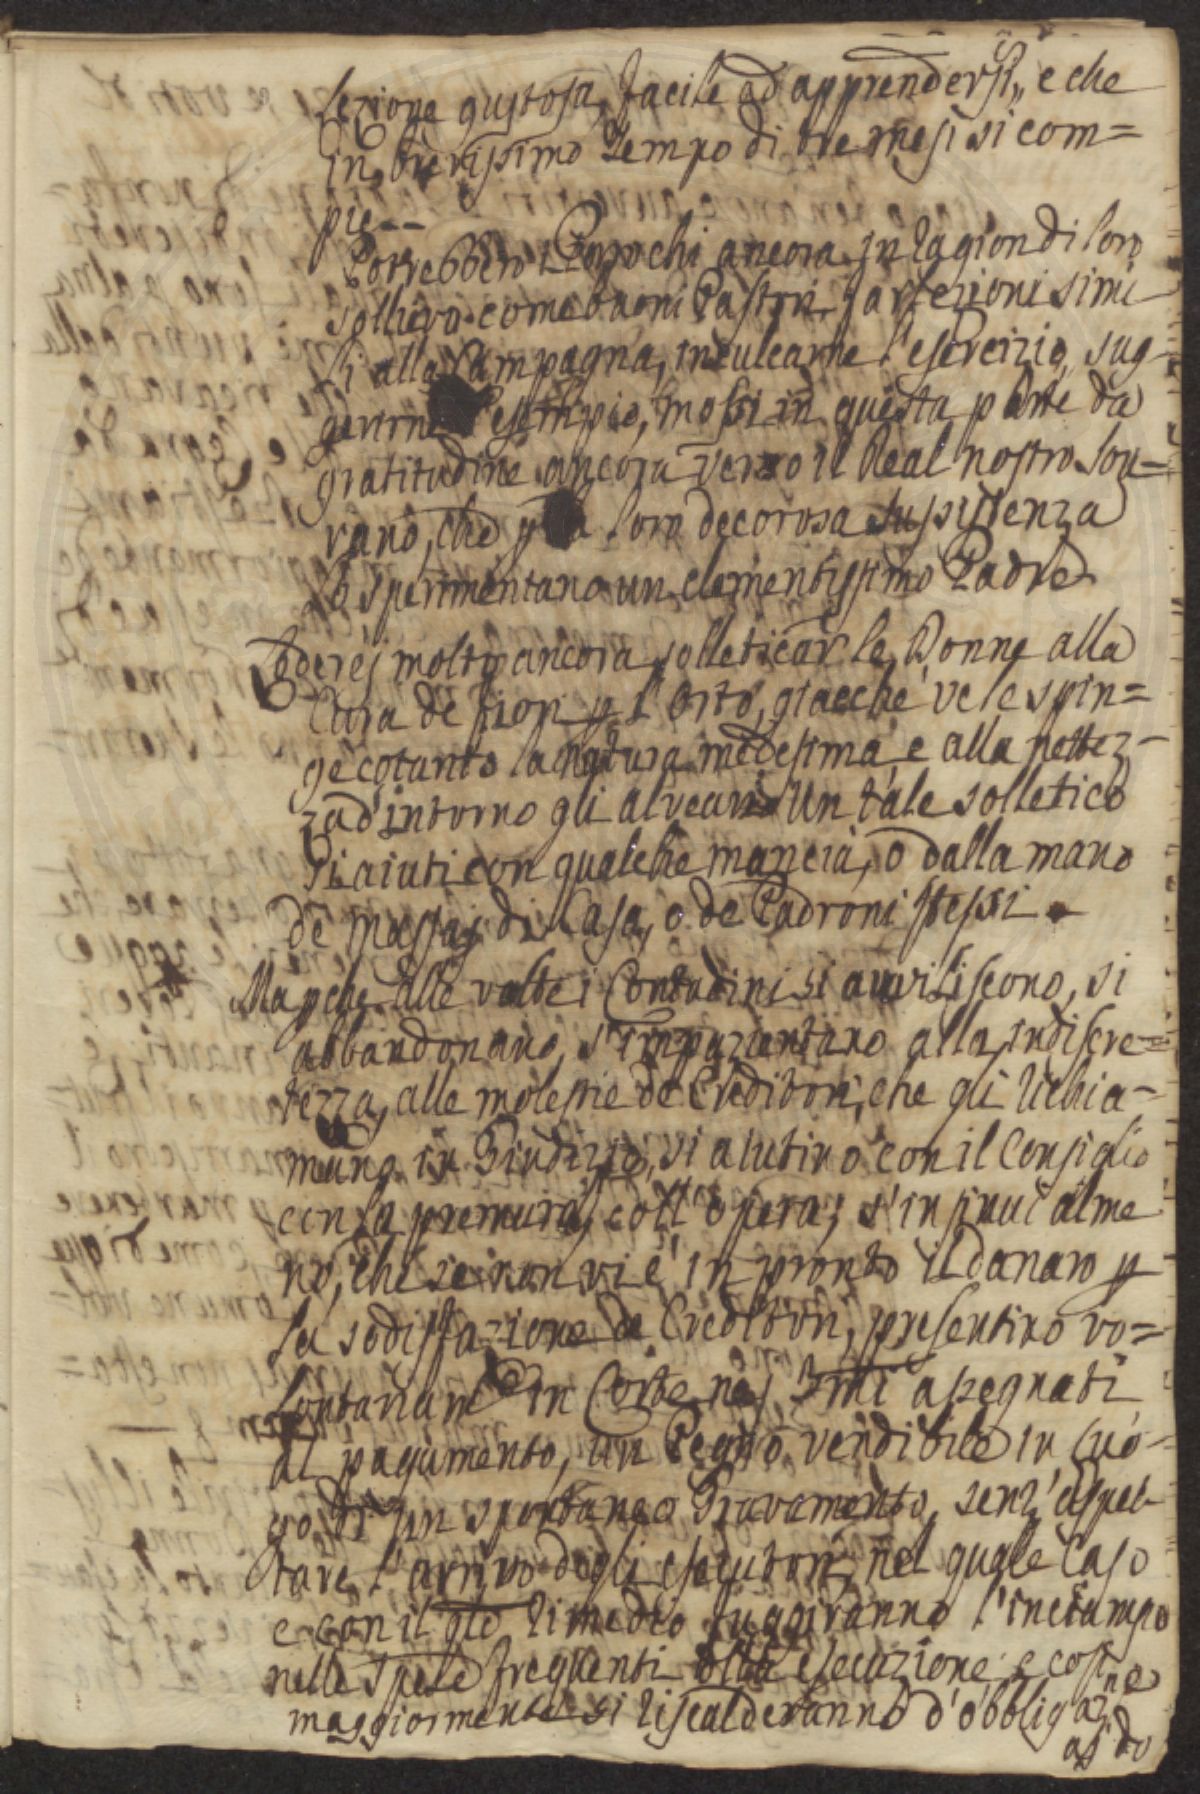 Lezione gustosa, facile ad apprendersi, e che
in brevissimo tempo di tre mesi si com=
pie--
Potrebbero i Parochi ancora in ragion di loro
sollievo come buoni Pastori far lezioni simi
li alla Campagna, inculcarne l'esercizio, sug-
gerirne l'esempio, mossi in questa parte da
gratitudine ancora verso il Real nostro Sov=
rano, che p la loro decorosa sussistenza
lo sperimentano un clementissimo Padre
Goderej molto ancora solleticar le Donne alla
Cura de fiori p l'Orto, giacche ve le spin=
ge cotanto la natura medesima, e alla nettez-
za d'intorno gli alveari. Un tale solletico
si aiuti con qualche mancia, o dalla mano
de Massaj di Casa, o de Padroni stessi.
Ma pche alle volte i Contadini si avviliscono, si
abbandonano, s'impazientano alla indiscre=
tezza, alle molestie de Creditori, che gli richia=
mano in Giudizio, si aiutino con il Consiglio
con la premura, coll'opera; s'insinui alme
no, che se non vi è in pronto il danaro p
la sodisfazione de Creditori, presentino vo=
lontariam.e in Corte nej Tmi assegnati
al pagamento, un Pegno vendibile in luo-
go di un spontaneo Gravamento, senz'aspet-
tare l'arrivo degli esecutori, nel quale Caso
e con il qle rimedio fuggiranno l'inciampo
nelle Spese frequenti della esecuzione, e così
maggiormente si riscalderanno d'obbligaz.ne
aj do